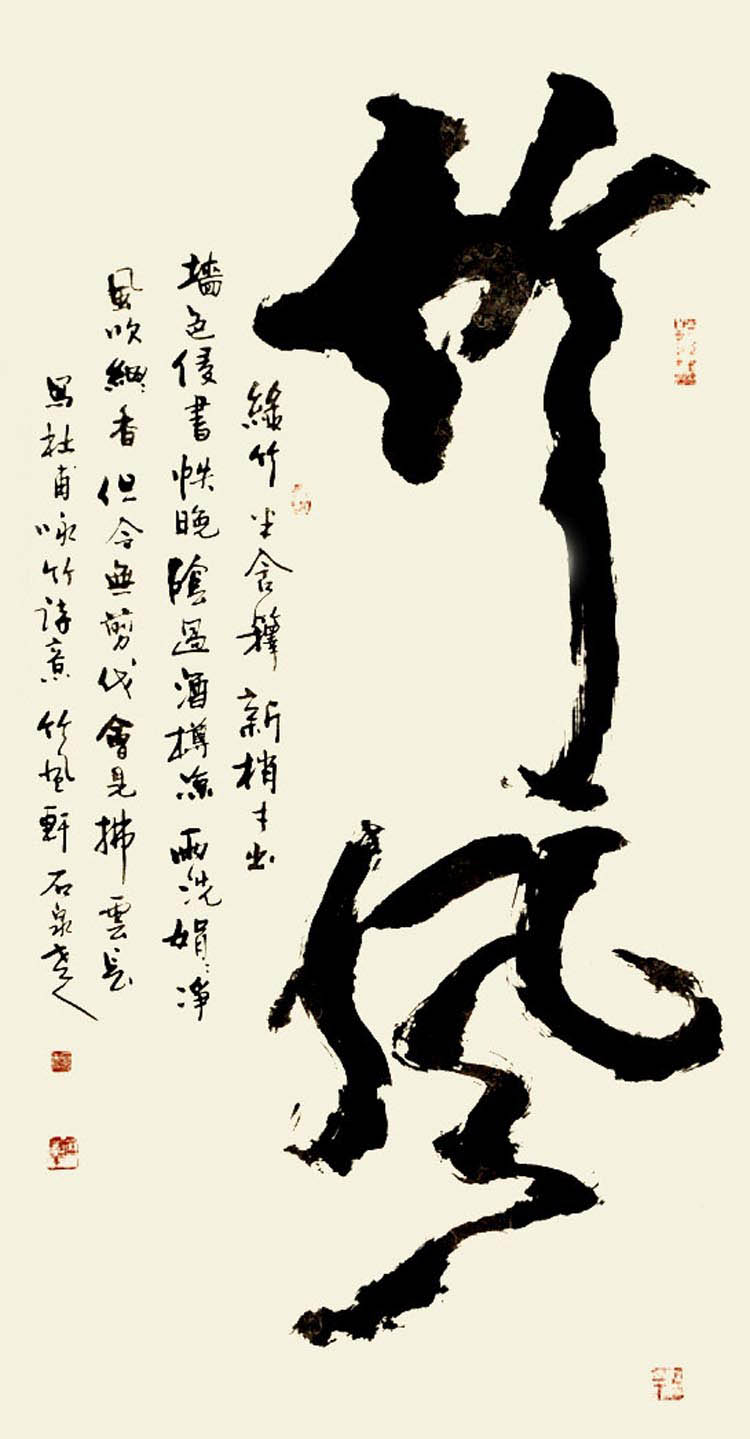 竹風
綠竹半含籜新梢才出
墻色侵書帙晚陰過酒樽涼雨洗娟々淨
風吹細々香但令無剪伐會見拂雲長
寫杜甫咏竹诗意竹風軒石泉老人